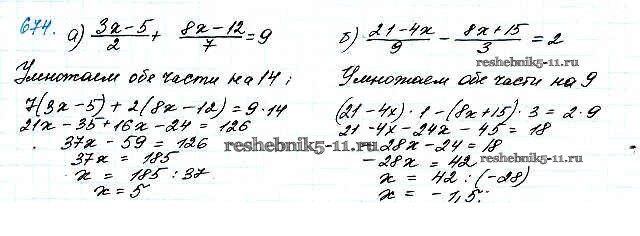 674. а) (3x-5)/2 + (8x-12)/7 = 9
Умножаем обе части на 14;
7(3x-5)+2(8x-12)=9·14
21x-35+16x-24=126
37x-59=126
37x=185
x=185:37
x=5
б) (21-4x)/9 - (8x+15)/3 = 2
reshebnik5-11.ru
Умножаем обе части на 9
(21-4x)·1-(8x+15)·3=2·9
21-4x-24x-45=18
-28x-24=18
-28x=42
x=42:(-28)
x=-1,5.
reshebnik5-11.ru
reshebnik5-11.ru